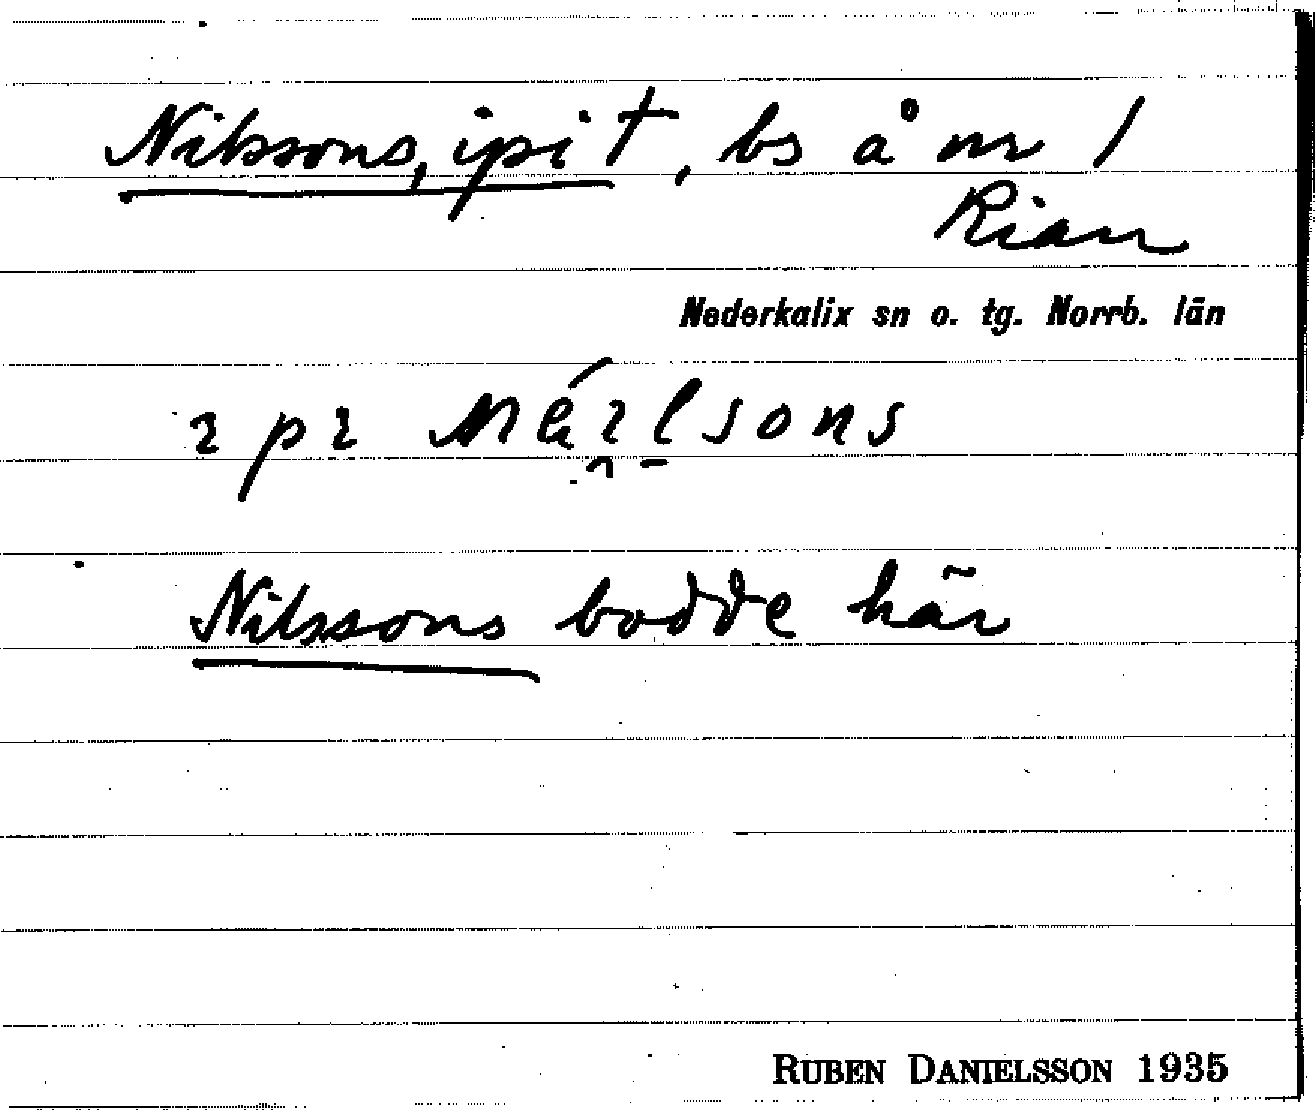 Nilssons, ipit, bs å nr 1
Rian
Nederkalix sn o. tg. Norrb. län
Nilssons bodde här
RUBEN DANIELSSON 1935